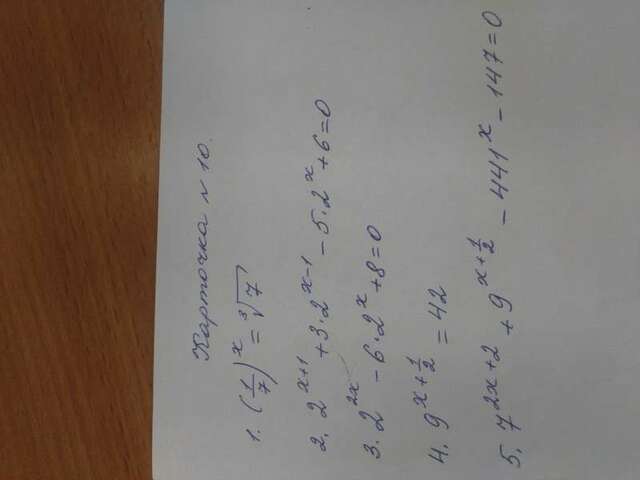 Карточка № 10.
1. (1/7)^x = ∛7
2. 2^(x+1) + 3·2^(x-1) - 5·2^x + 6 = 0
3. 2^(2x) - 6·2^x + 8 = 0
4. 9^(x+1/2) = 42
5. 7^(2x+2) + 9^(x+1/2) - 441^x - 147 = 0